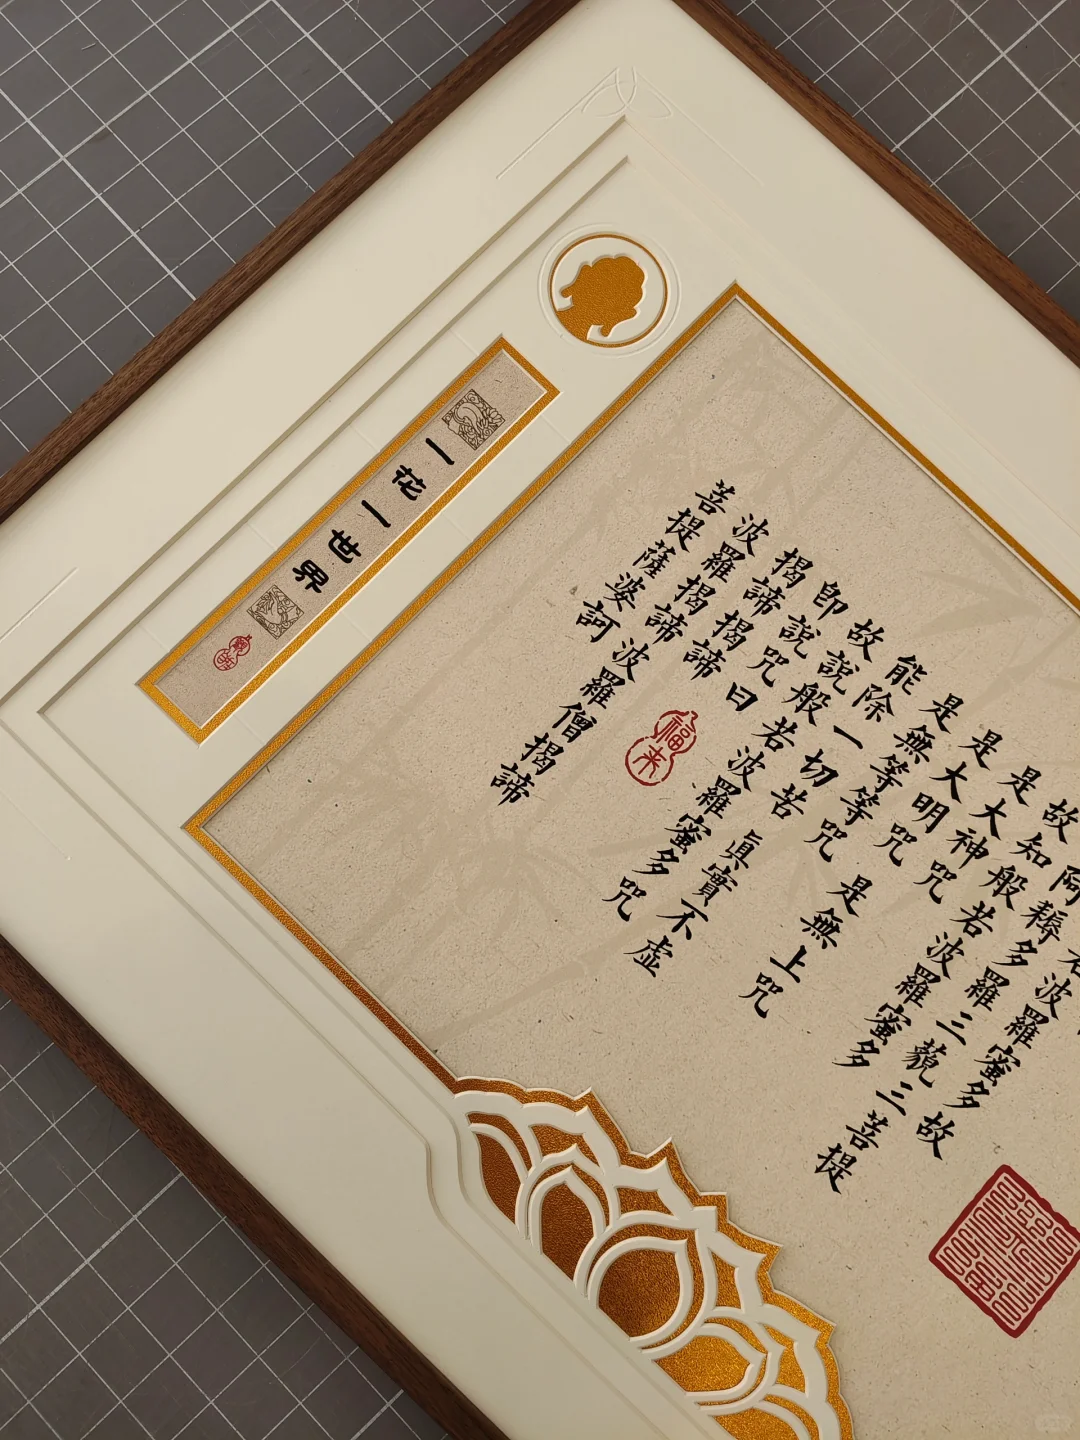 波羅蜜多故
阿耨多羅三藐三菩提
故知般若波羅蜜多
是大神咒
是大明咒 是無上咒
是無等等咒
能除一切苦 真實不虛
故說般若波羅蜜多咒
即說咒曰
揭諦揭諦
波羅揭諦 波羅僧揭諦
菩提薩婆訶
福来
一花一世界